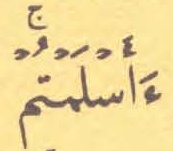 ءَأَسْلَمْتُمْ ۚ